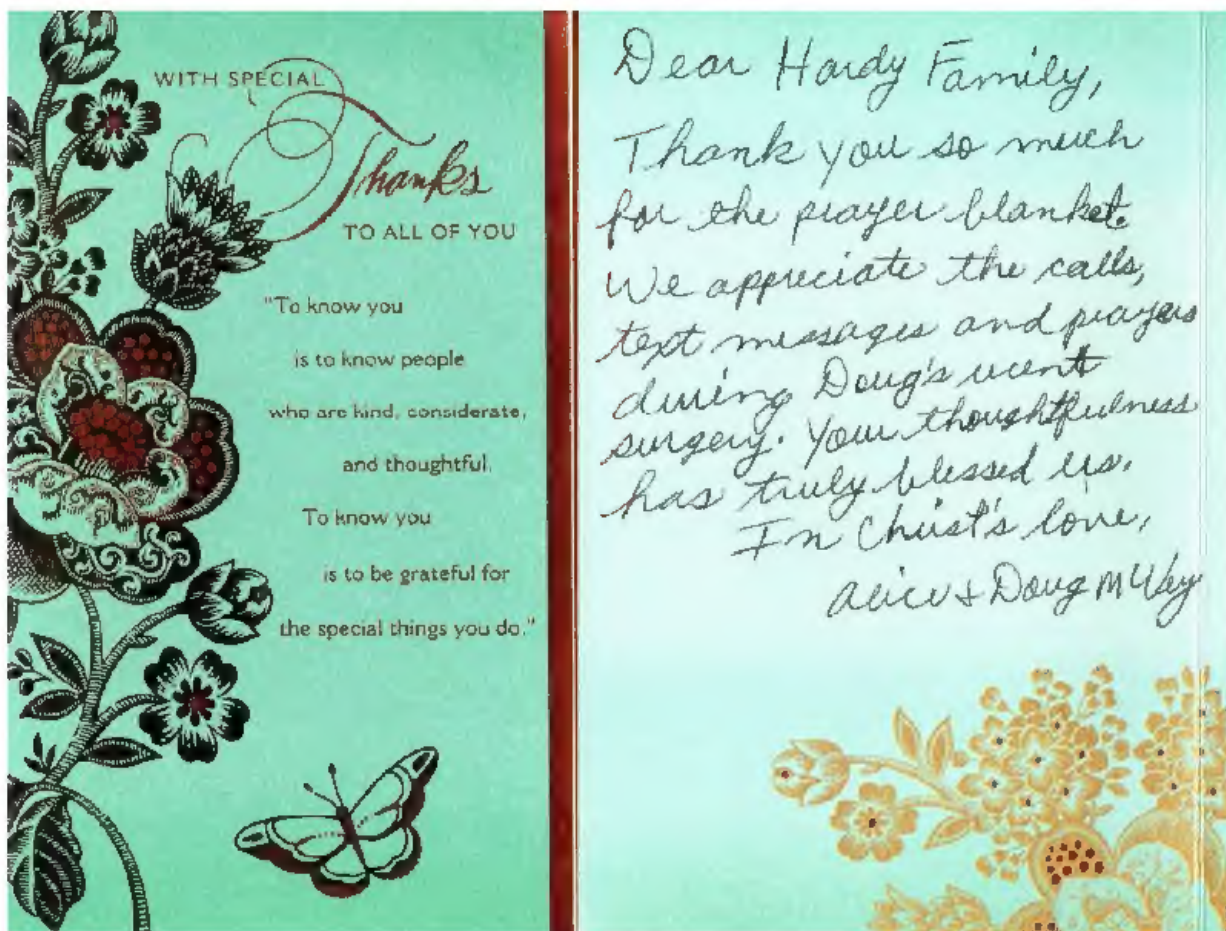 WITH SPECIAL
Thanks
TO ALL OF YOU
"To know you
is to know people
who are kind, considerate,
and thoughtful.
To know you
is to be grateful for
the special things you do."
Dear Hardy Family,
Thank you so much
for the prayer blanket.
We appreciate the calls,
text messages and prayers
during Doug's recent
surgery. Your thoughtfulness
has truly blessed us.
In Christ's love,
Alice & Doug McVay